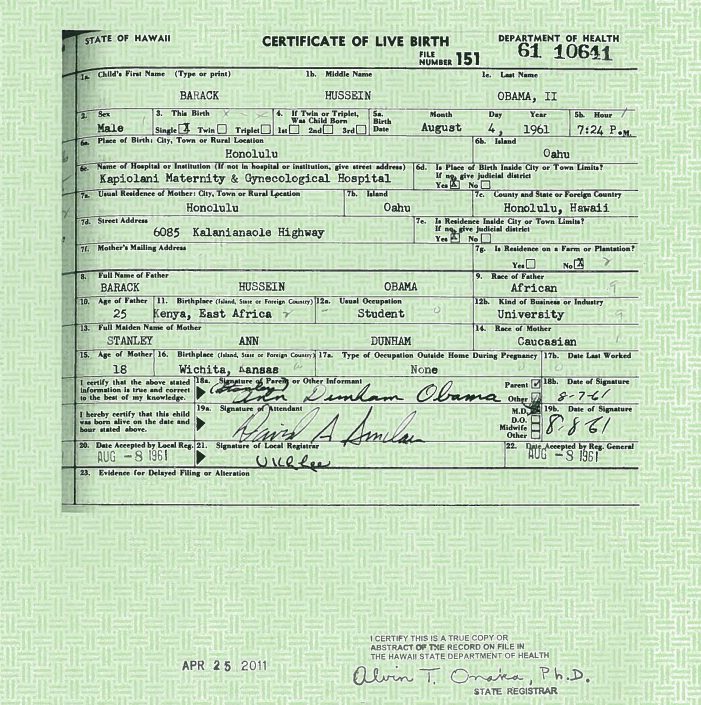 STATE OF HAWAII CERTIFICATE OF LIVE BIRTH DEPARTMENT OF HEALTH
FILE NUMBER 151 61 10641
1a. Child's First Name (Type or print) 1b. Middle Name 1c. Last Name
BARACK HUSSEIN OBAMA, II
2. Sex 3. This Birth 4. If Twin or Triplet, Was Child Born 5a. Birth Date Month Day Year 5b. Hour
Male Single X Twin Triplet 1st 2nd 3rd August 4, 1961 7:24 P.M.
6a. Place of Birth: City, Town or Rural Location 6b. Island
Honolulu Oahu
6c. Name of Hospital or Institution (If not in hospital or institution, give street address) 6d. Is Place of Birth Inside City or Town Limits? If no, give judicial district
Kapiolani Maternity & Gynecological Hospital Yes X No
7a. Usual Residence of Mother: City, Town or Rural Location 7b. Island 7c. County and State or Foreign Country
Honolulu Oahu Honolulu, Hawaii
7d. Street Address 7e. Is Residence Inside City or Town Limits? If no, give judicial district
6085 Kalanianaole Highway Yes X No
7f. Mother's Mailing Address 7g. Is Residence on a Farm or Plantation?
Yes No X
8. Full Name of Father 9. Race of Father
BARACK HUSSEIN OBAMA African
10. Age of Father 11. Birthplace (Island, State or Foreign Country) 12a. Usual Occupation 12b. Kind of Business or Industry
25 Kenya, East Africa Student University
13. Full Maiden Name of Mother 14. Race of Mother
STANLEY ANN DUNHAM Caucasian
15. Age of Mother 16. Birthplace (Island, State or Foreign Country) 17a. Type of Occupation Outside Home During Pregnancy 17b. Date Last Worked
18 Wichita, Kansas None
I certify that the above stated information is true and correct to the best of my knowledge. 18a. Signature of Parent or Other Informant Parent Other 18b. Date of Signature
(Stanley) Ann Dunham Obama 8-7-61
I hereby certify that this child was born alive on the date and hour stated above. 19a. Signature of Attendant M.D. D.O. Midwife Other 19b. Date of Signature
David A Sinclair 8-8-61
20. Date Accepted by Local Reg. 21. Signature of Local Registrar 22. Date Accepted by Reg. General
AUG -8 1961 U K L Lee AUG -8 1961
23. Evidence for Delayed Filing or Alteration
I CERTIFY THIS IS A TRUE COPY OR
ABSTRACT OF THE RECORD ON FILE IN
THE HAWAII STATE DEPARTMENT OF HEALTH
APR 25 2011
Alvin T. Onaka, Ph.D.
STATE REGISTRAR